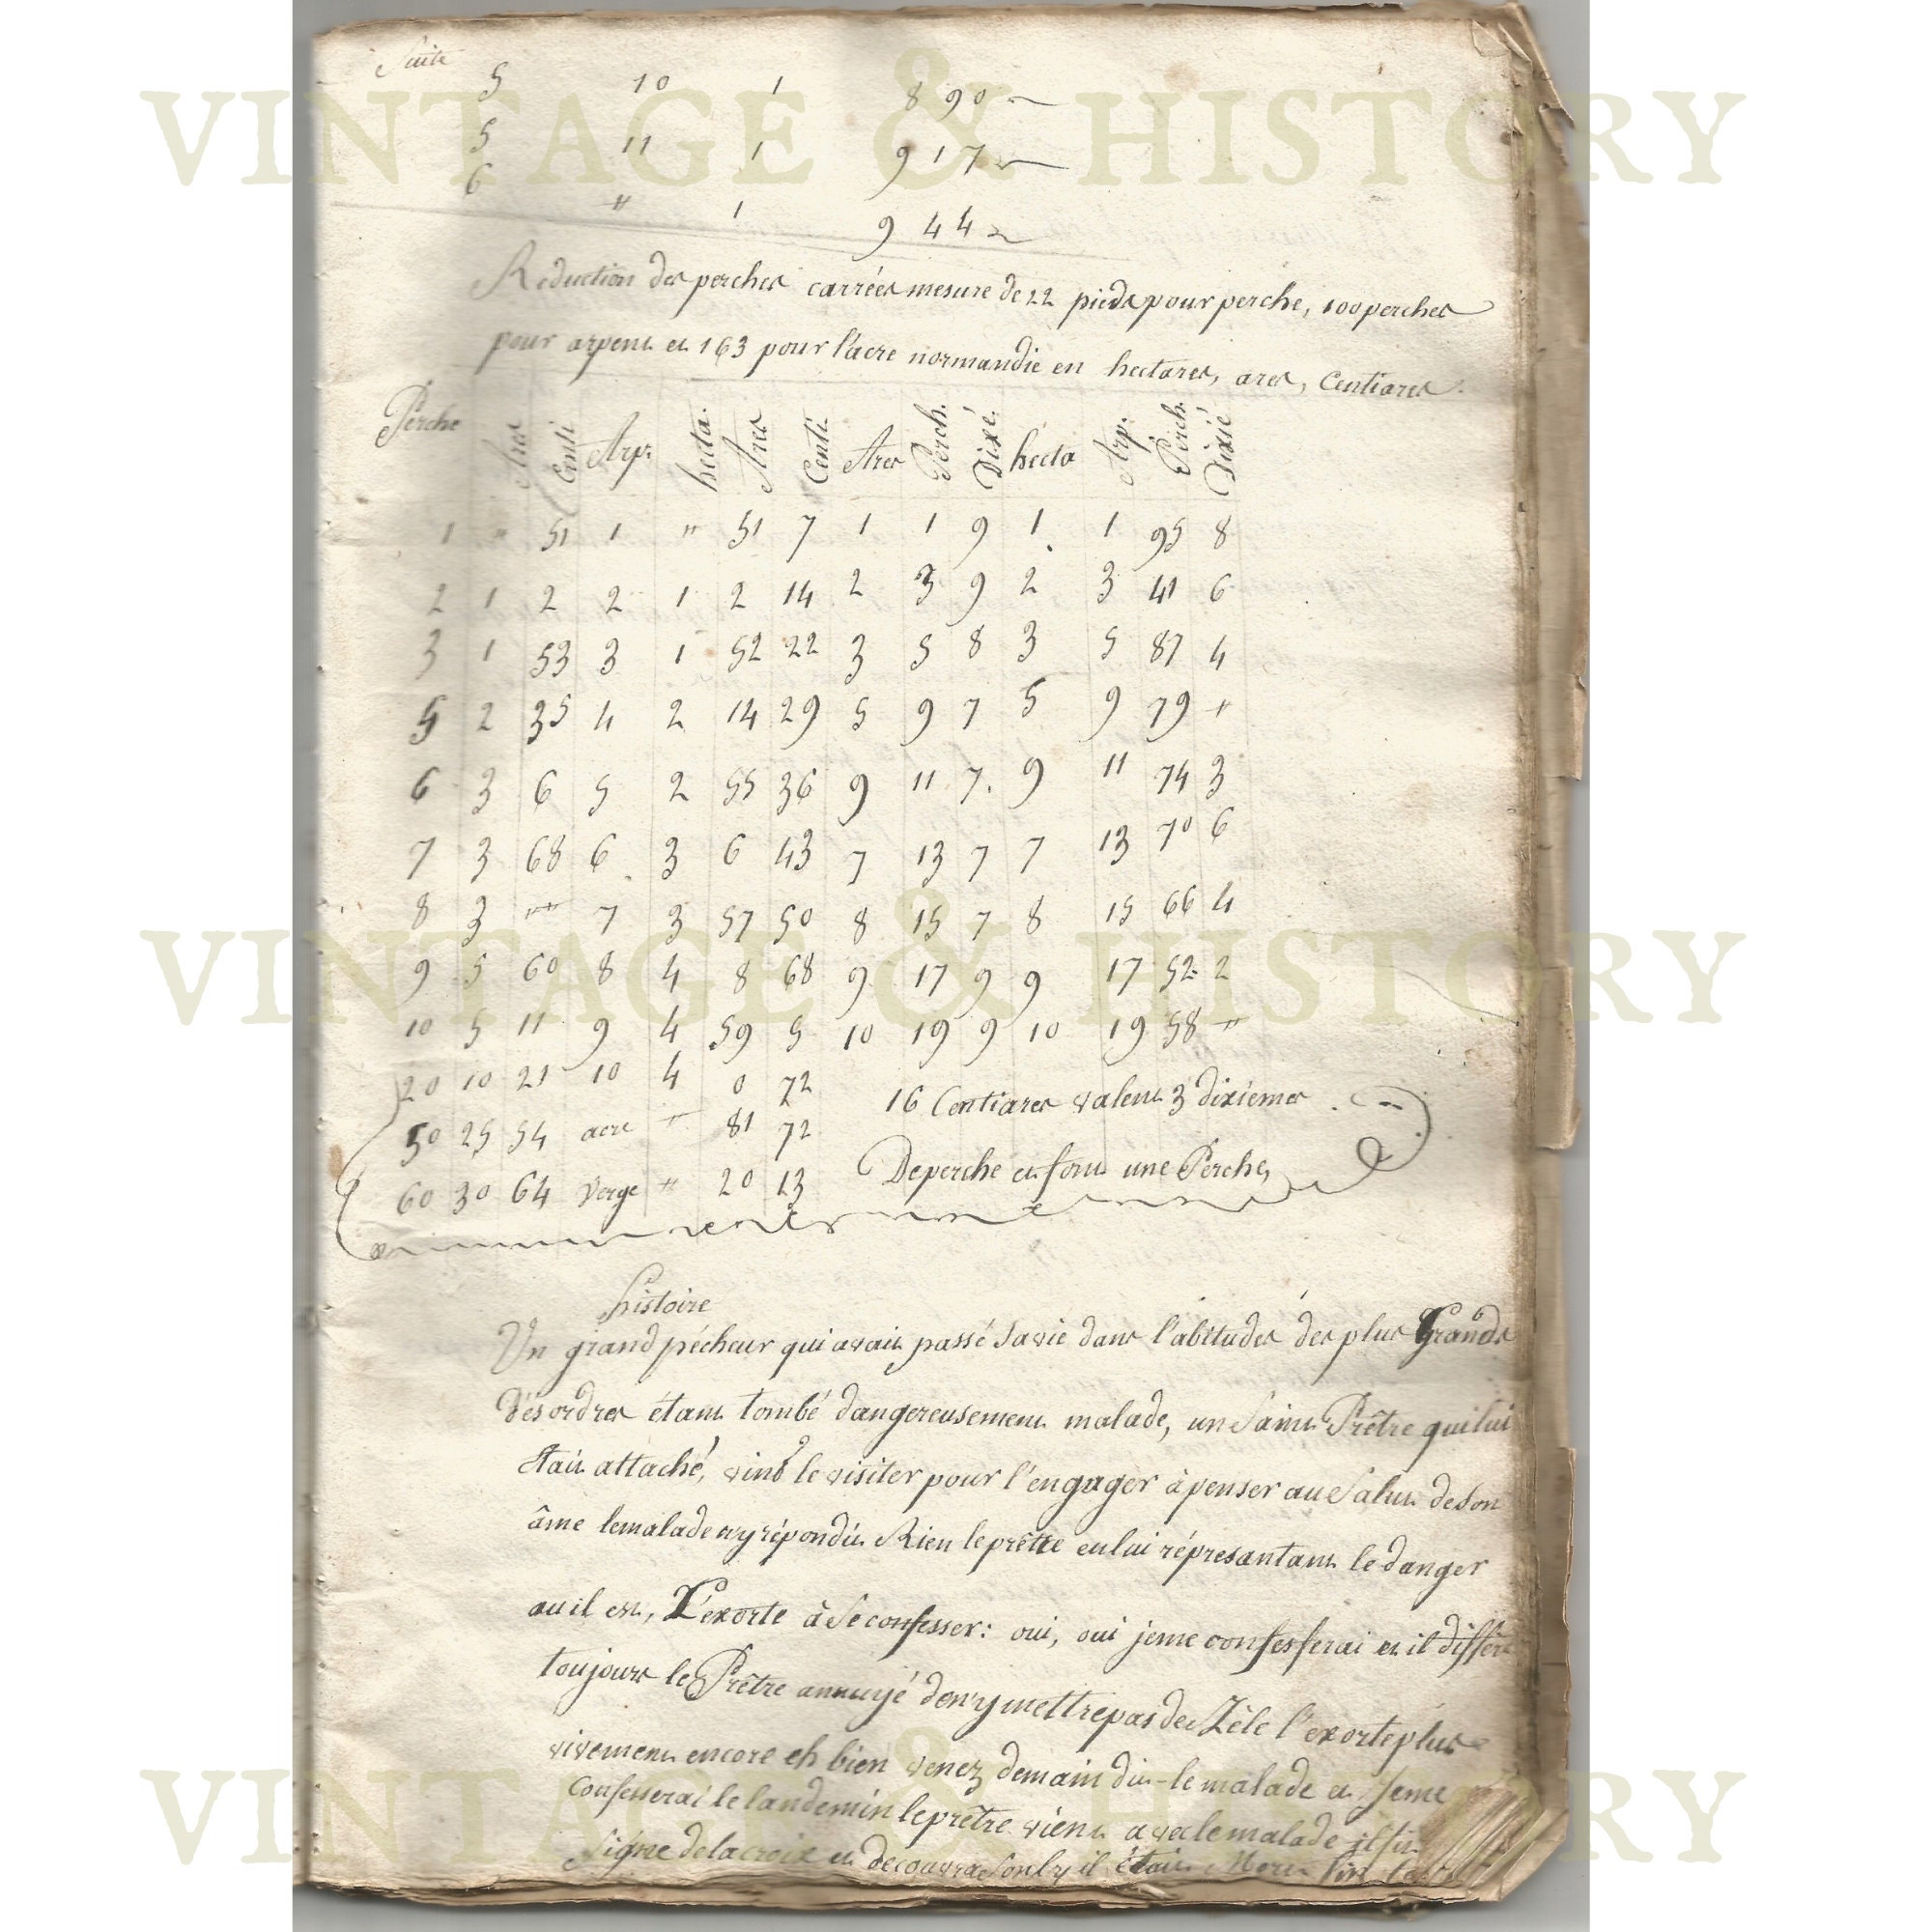 VINTAGE & HISTORY
Suite
5 10 1 8 90
5 11 1 9 17
6 " 1 9 44
Reduction des perches carrées mesure de 22 pieds pour perche, 100 perches
pour arpent et 163 pour l'acre normandie en hectares, ares, Centiares.
Perche Ares Centi Arp. hecta. Ares Centi Ares Perch. Dixé. hecta Arp. Perch. Dixié
1 " 51 1 " 51 7 1 1 9 1. 1 95 8
2 1 2 2 1 2 14 2 3 9 2 3 41 6
3 1 53 3 1 52 22 3 5 8 3 5 87 4
5 2 35 4 2 14 29 5 9 7 5 9 79 "
6 3 6 5 2 55 36 9 11 7. 9 11 74 3
7 3 68 6. 3 6 43 7 13 7 7 13 70 6
8 3 "" 7 3 57 50 8 15 7 8 15 66 4
9 5 60 8 4 8 68 9 17 9 9 17 52 2
10 5 11 9 4 59 5 10 19 9 10 19 58 "
20 10 21 10 4 0 72 16 Centiares valent 3 dixiemes
50 25 54 acre " 81 72
60 30 64 Verge " 20 13 De perche et font une Perche,
VINTAGE & HISTORY
histoire
Un grand pécheur qui avait passé sa vie dans l'abitudes des plus Grands
Désordres étant tombé dangereusement malade, un Saint Prêtre qui lui
était attaché, vint le visiter pour l'engager à penser au Salut de son
âme le malade ny répondit Rien le prêtre en lui réprésantant le danger
ou il est, L'exorte à Se confesser: oui, oui je me confesserai et il differe
toujours le Prêtre annuyé den'y mettre pas de Zèle l'exorte plus
vivement encore eh bien venez demain dit-le malade et Jeme
Confesserai le landemin le prêtre vient a vec le malade il fit
Signe de la croix et decouvra son lit il était Mort
VINTAGE & HISTORY